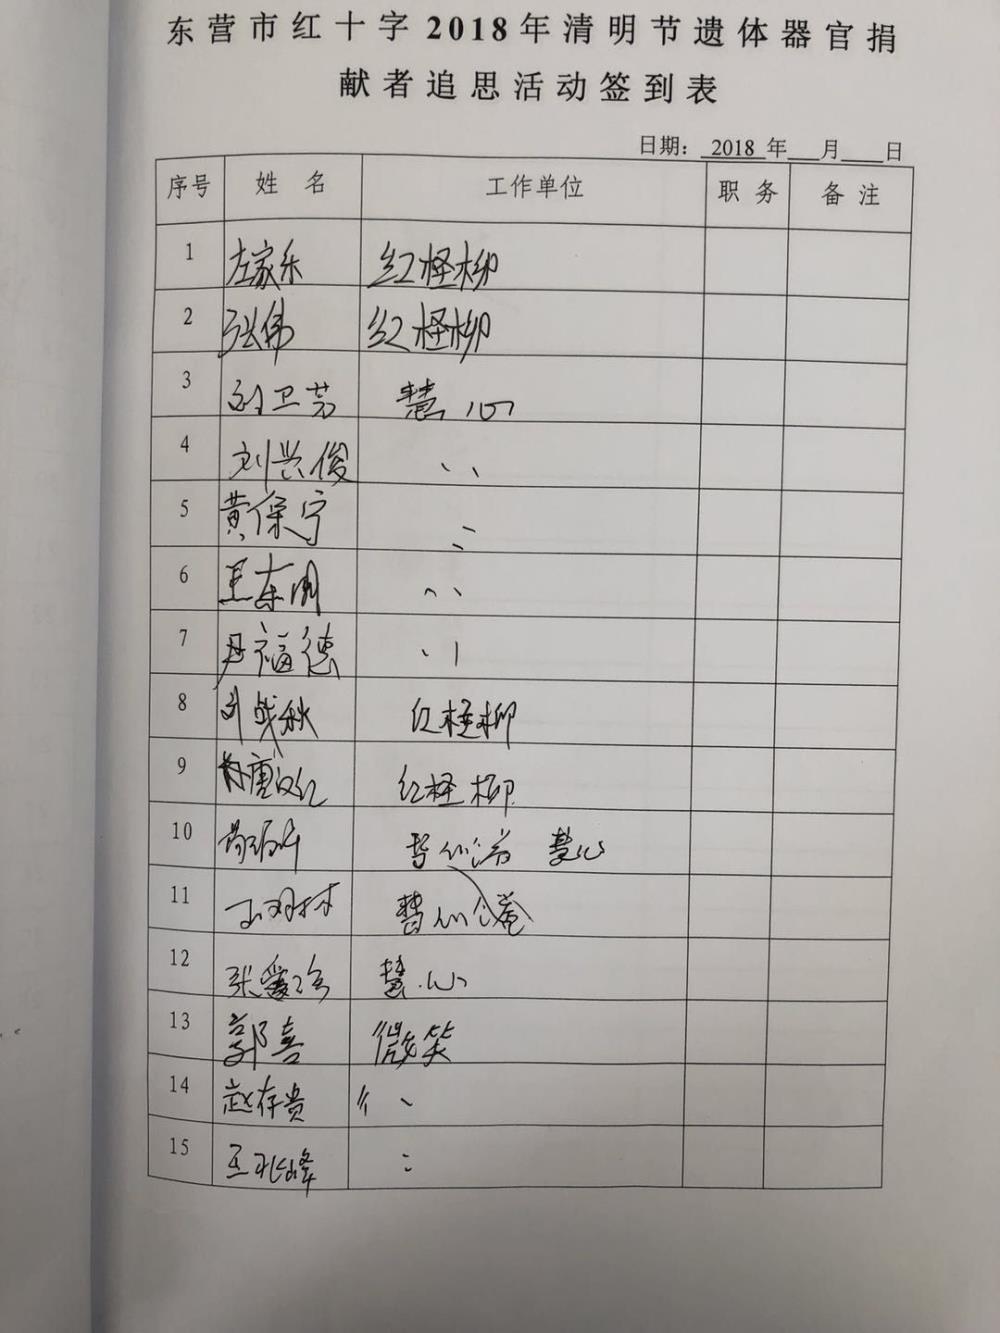 东营市红十字2018年清明节遗体器官捐
献者追思活动签到表
日期：2018年___月___日
序号 姓名 工作单位 职务 备注
1 左家乐 红柽柳
2 张伟 红柽柳
3 刘卫芳 慧心
4 刘兴俊 、、
5 黄保宁 、、
6 王东明 、、
7 丹福德 、、
8 刘战秋 红柽柳
9 唐汉红 红柽柳
10 慧心
11
12 张爱珍 慧心
13 郭喜 微笑
14 赵存贵 、、
15 王兆峰 、、